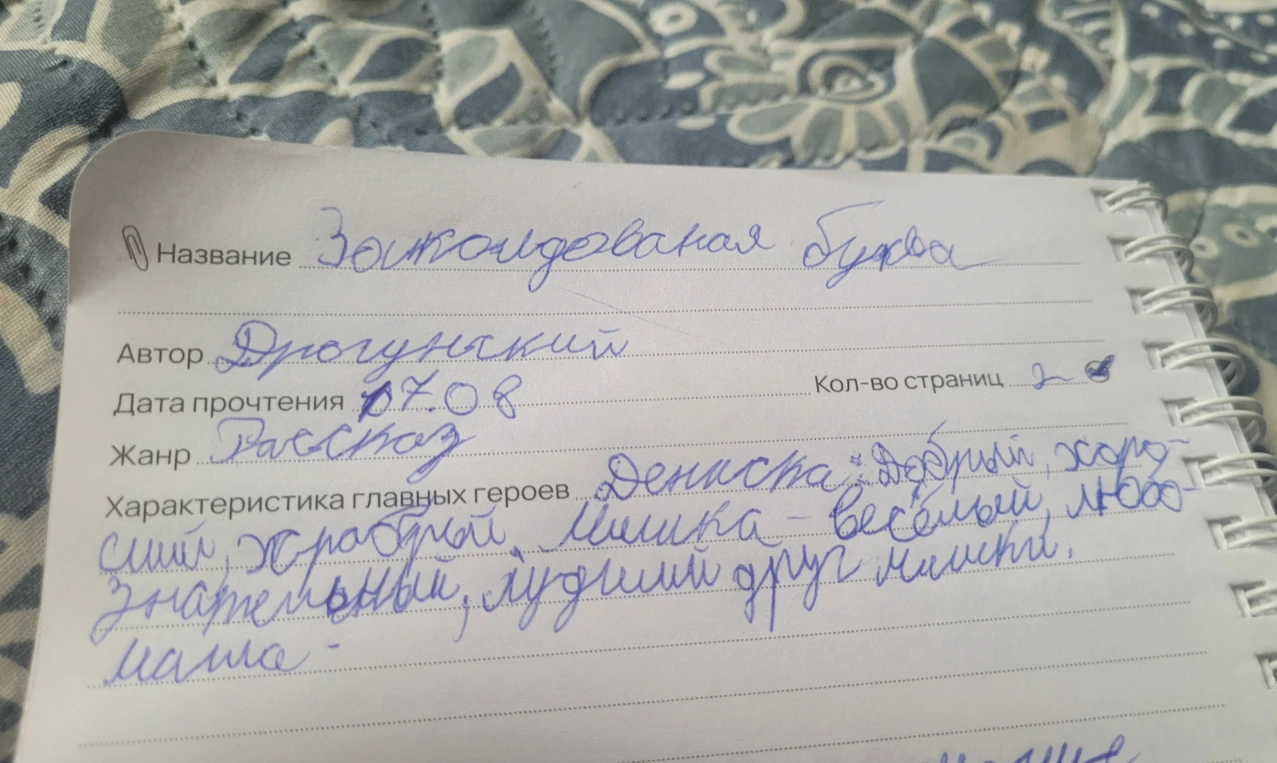 Название Заколдованая буква
Автор Драгунский
Дата прочтения 07.08 Кол-во страниц 2
Жанр Рассказ
Характеристика главных героев Дениска: Добрый, хоро-
ший, храбрый. Мишка - весёлый, любо-
знательный, лудший друг Мишки.
Маша -